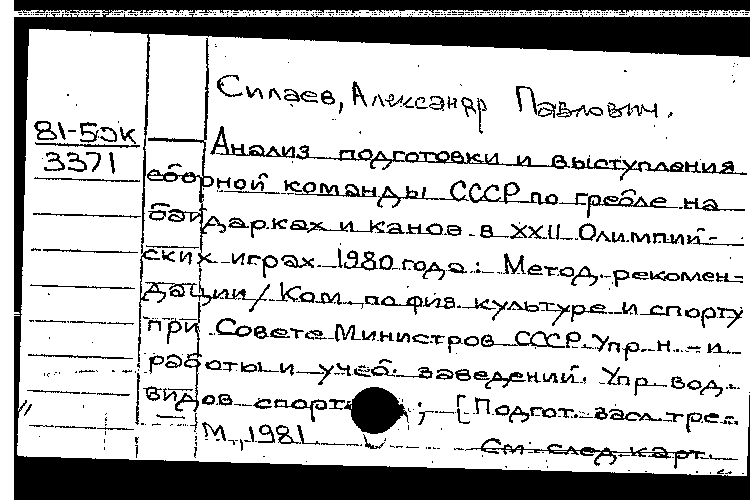 Силаев, Александр Павлович.
81-5ЭК
3371
Анализ подготовки и выступления
сборной команды СССР по гребле на
байдарках и каноэ в XXII Олимпий-
ских играх 1980 года: Метод. рекомен-
дации / Ком. по физ. культуре и спорту
при Совете Министров СССР. Упр. н.-и.
работы и учеб. заведений. Упр. вод.
видов спорта ; [Подгот. засл. тре-
М., 1981
См. след. карт.